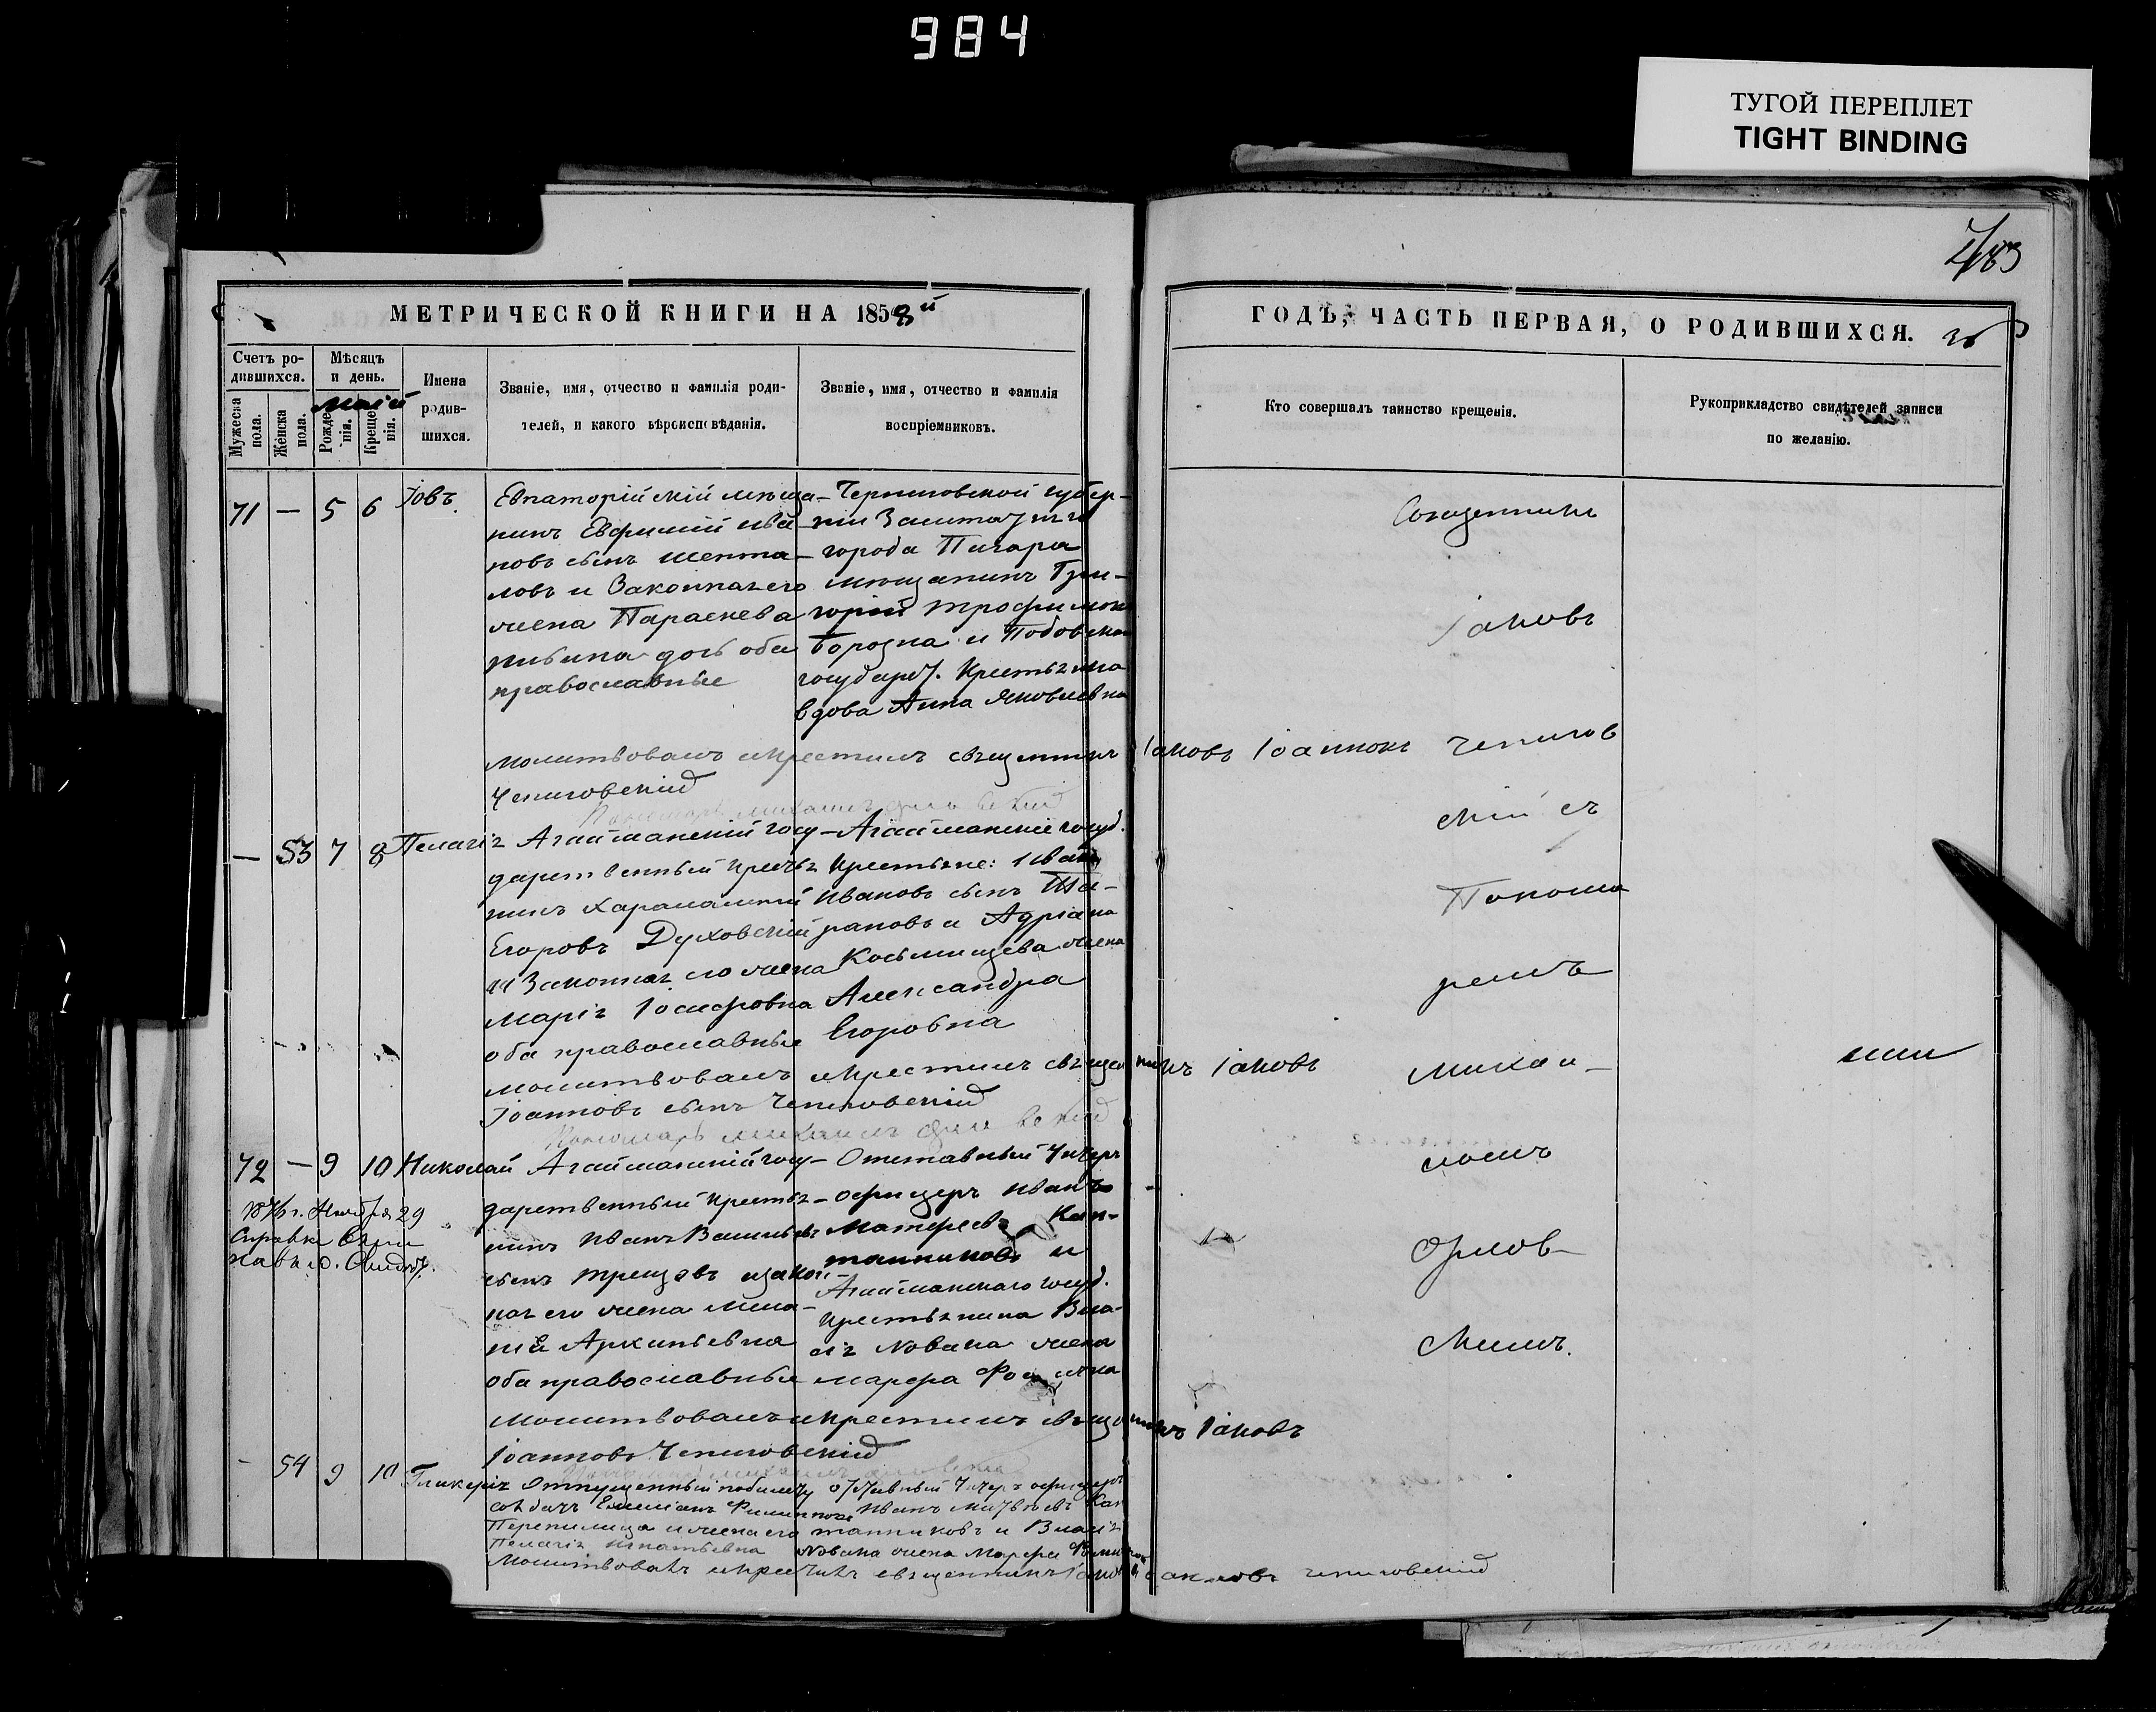 984
ТУГОЙ ПЕРЕПЛЕТ
TIGHT BINDING
483
МЕТРИЧЕСКОЙ КНИГИ НА 1858й
ГОДЪ, ЧАСТЬ ПЕРВАЯ, О РОДИВШИХСЯ.
Счетъ родившихся.
Мужеска пола.
Женска пола.
Мѣсяцъ и день.
Маій
Рожденія.
Крещенія.
Имена родившихся.
Званіе, имя, отчество и фамилія родителей, и какого вѣроисповѣданія.
Званіе, имя, отчество и фамилія воспріемниковъ.
Кто совершалъ таинство крещенія.
Рукоприкладство свидѣтелей записи по желанію.
71 — 5 6 Іовъ.
Евпаторійскій мѣща-
нинъ Евфимій Ива-
новъ сынъ Шепта-
ловъ и Законная его
жена Параскева
дочь оба
православные
Черниговской губер-
ніи Заштатнаго
города
мѣщанинъ Гри-
горій Трофимовъ
Борозна и
государ. Крестьянка
вдова Анна Яковлевна
Священникъ
Іаковъ
Чепигов
скій съ
Понома
ремъ
Михаи-
ломъ
Орлов-
скимъ.
Молитвовалъ и крестилъ священникъ Іаковъ Іоанновъ
Чепиговскій
Пономарь Михаилъ Орловскій
— 53 7 8 Пелагія
Агайманскій госу-
дарственный крестья
нинъ Харалампій
Егоровъ Духовскій
и Законная его жена
Марія Іосифовна
оба православные
Агайманскіе госуд.
крестьяне: Иванъ
Ивановъ сынъ Та-
рановъ и Адріана
жена
Александра
Егоровна
Молитвовалъ и крестилъ священникъ Іаковъ
Іоанновъ сынъ Чепиговскій
Пономарь Михаилъ Орловскій
72 — 9 10 Николай
29
Справка
Агайманскій госу-
дарственный крестья-
нинъ Иванъ Васильевъ
сынъ и закон-
ная его жена Мела-
нія Архиповна
оба православные
Отставный Унтеръ
офицеръ Иванъ
Матфеевъ Кап-
танниковъ и
Агайманскаго госуд.
крестьянина Вла-
сія Новака жена
Марфа
Молитвовалъ и крестилъ священникъ Іаковъ
Іоанновъ Чепиговскій
- 54 9 10 Гликерія
Отпущенный по билету
солдатъ Емиліанъ Филиппов
Перепелица и жена его
Пелагія Игнатьевна
отставный Унтеръ офицеръ
Иванъ Матвѣевъ Кап
танниковъ и Власія
Новака жена Марфа
Молитвовалъ и крестилъ священникъ Іаковъ Іоанновъ Чепиговскій